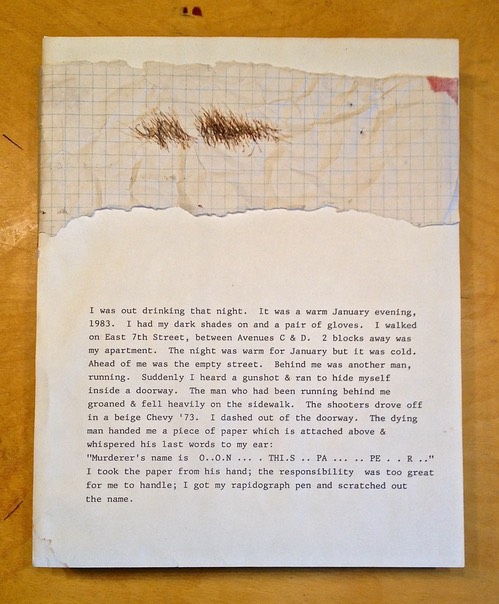 I was out drinking that night. It was a warm January evening,
1983. I had my dark shades on and a pair of gloves. I walked
on East 7th Street, between Avenues C & D. 2 blocks away was
my apartment. The night was warm for January but it was cold.
Ahead of me was the empty street. Behind me was another man,
running. Suddenly I heard a gunshot & ran to hide myself
inside a doorway. The man who had been running behind me
groaned & fell heavily on the sidewalk. The shooters drove off
in a beige Chevy '73. I dashed out of the doorway. The dying
man handed me a piece of paper which is attached above &
whispered his last words to my ear:
"Murderer's name is O..O.N ... . THI.S .. PA ... .. PE . . R .."
I took the paper from his hand; the responsibility was too great
for me to handle; I got my rapidograph pen and scratched out
the name.